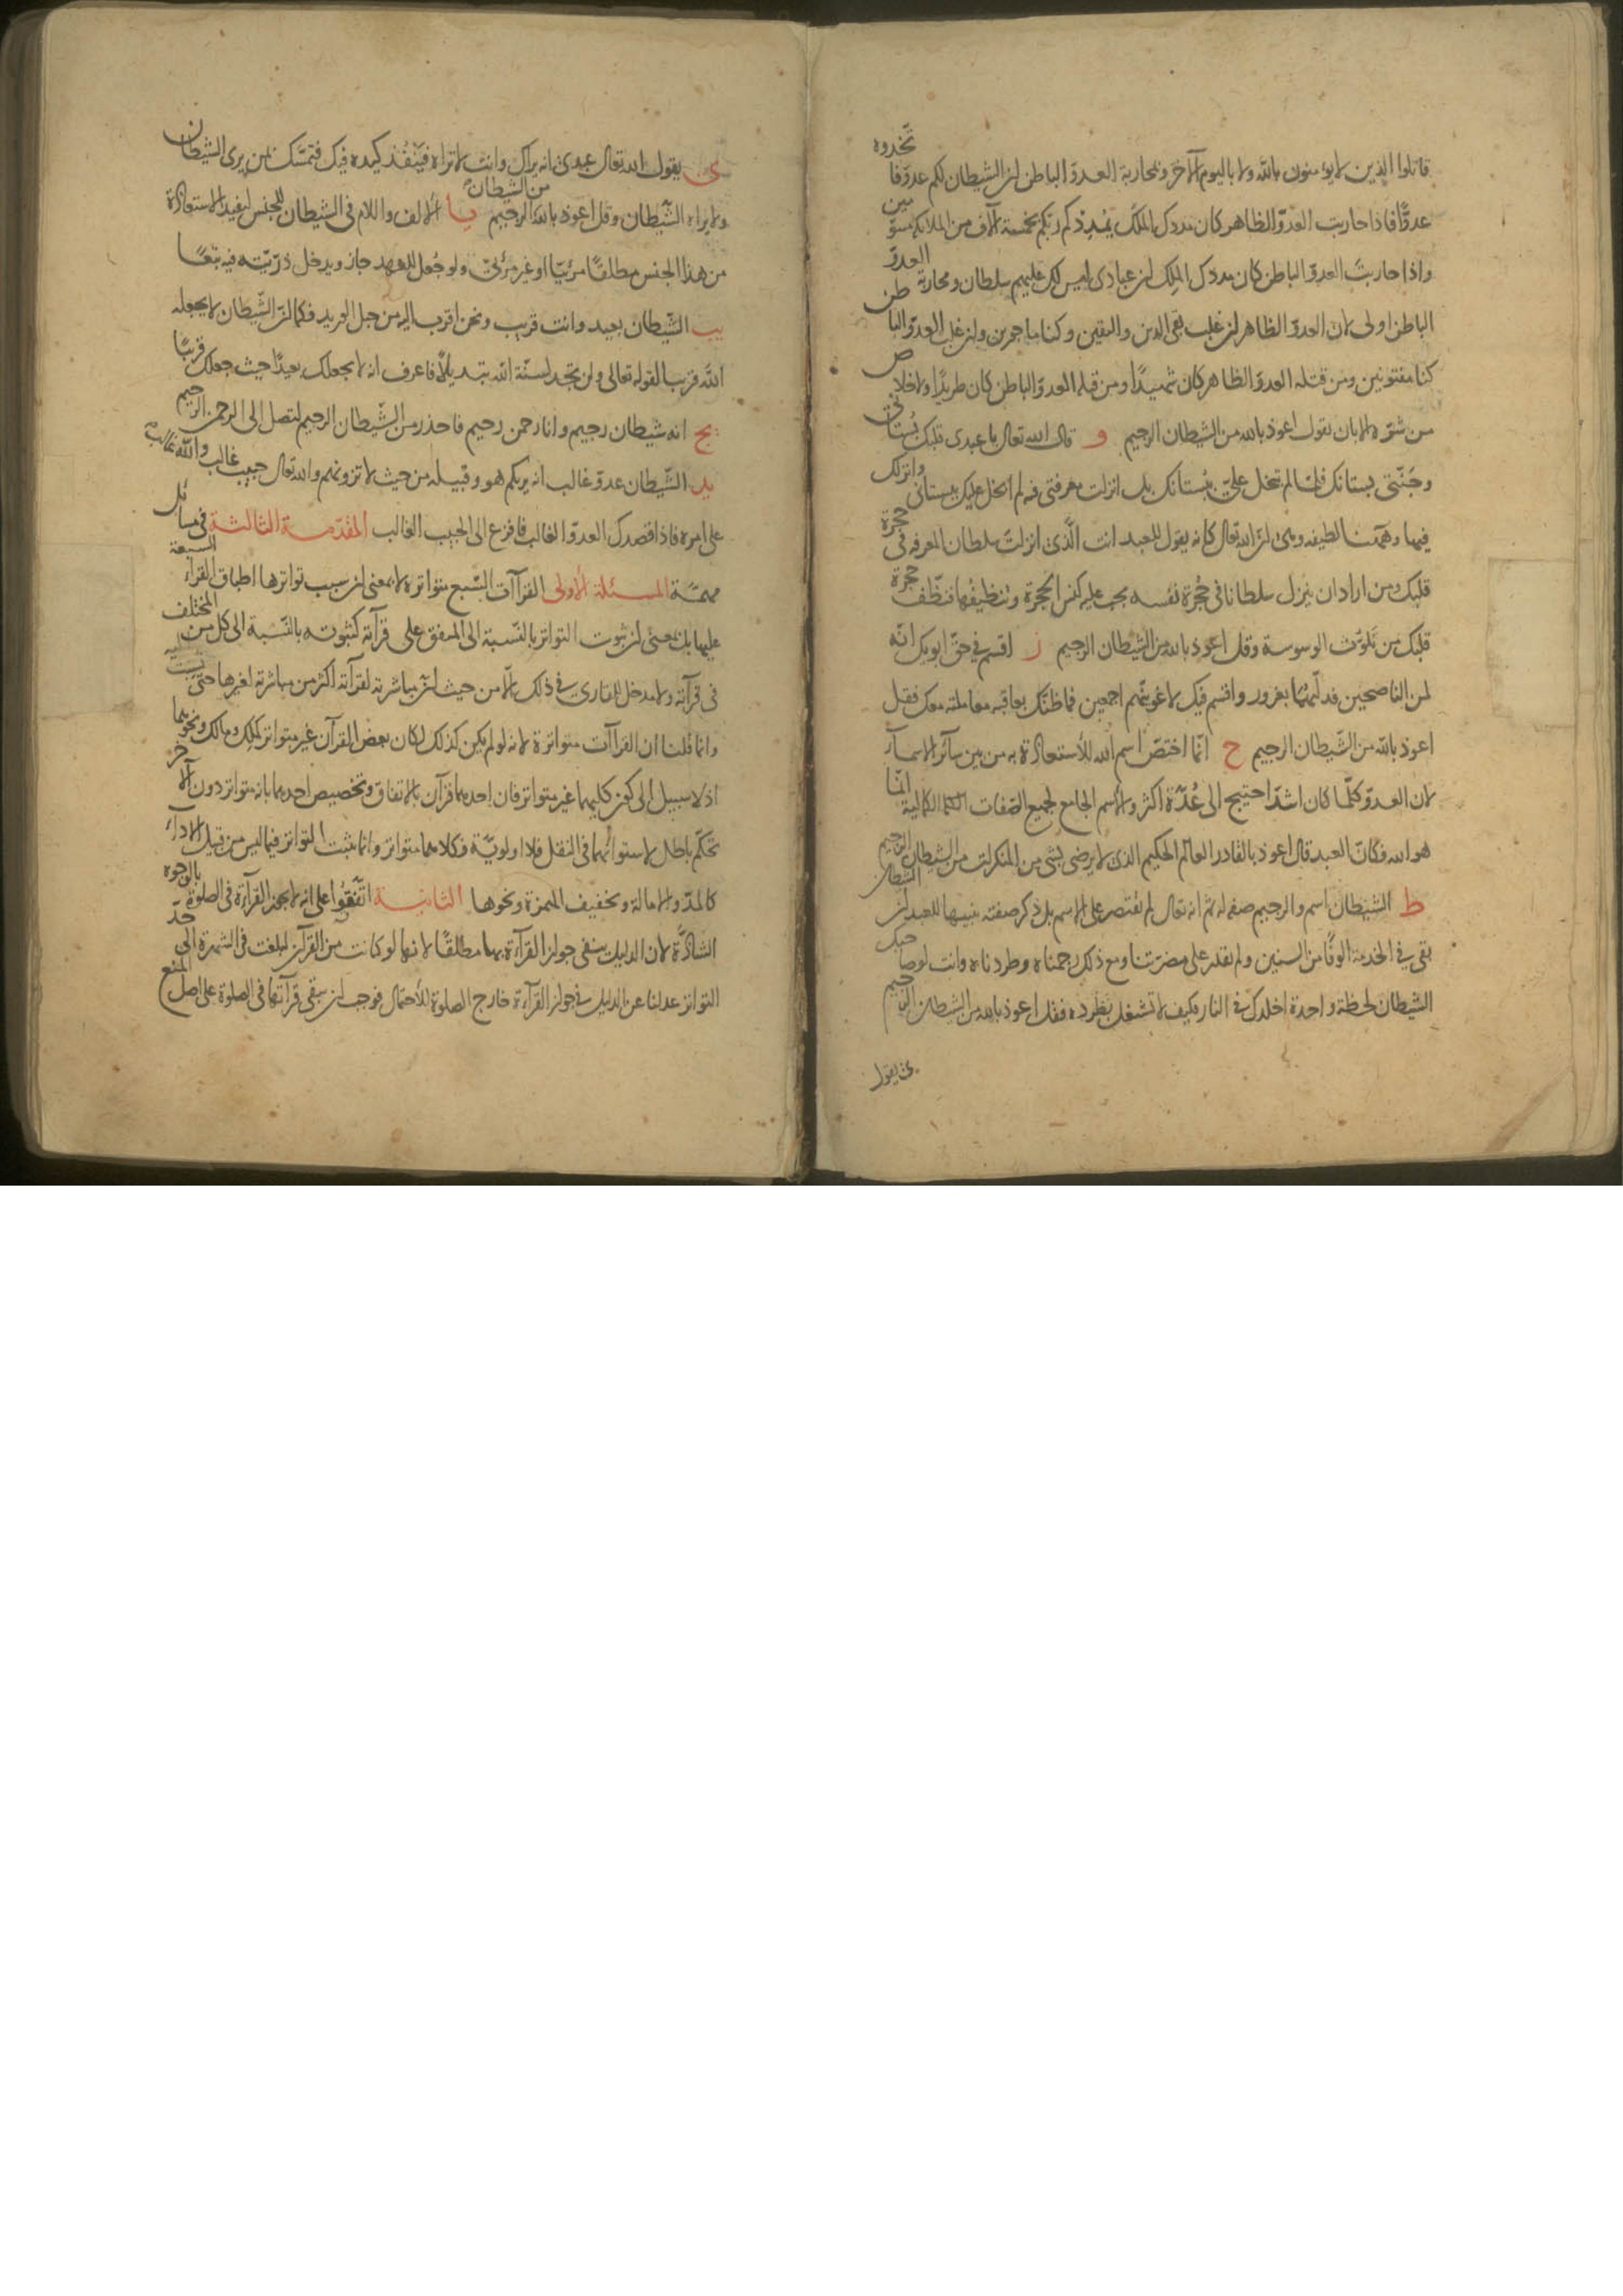 قاتلوا الذين لا يؤمنون بالله ولا باليوم الآخر ومحاربة العدوّ الباطن انّ الشيطان لكم عدوّ فاتّخذوه
عدوًّا فاذا حاربت العدوّ الظاهر كان مددك الملك يُمْدِدْكم ربّكم بخمسة آلاف من الملائكة مسوّمين
واذا حاربتَ العدوّ الباطن كان مددك الملِك ان عبادى ليس لك عليهم سلطان ومحاربة العدوّ
الباطن اولى لان العدوّ الظاهر ان غلب بقى الدين واليقين وكنا ماجورين وان غلب العدوّ الباطن
كنا مفتونين ومن قتله العدوّ الظاهر كان شهيدًا ومن قتله العدوّ الباطن كان طريدًا ولا خلاص
من شرّه الا بان يقول اعوذ بالله من الشيطان الرجيم و قال الله تعالى يا عبدى قلبك بُستانى
وجَنّتى بستانك فلمّا لم تبخل علىّ ببُستانك بل انزلت معرفتى فيه لم ابخل عليك ببستانى وانزلك
فيها وههُنا لطيفه وهى ان الله تعالى كانه يقول للعبد انت الّذى انزلتَ سلطان المعرفه فى حجرة
قلبك ومن اراد ان ينزل سلطانا فى حُجرة نفسه يجب عليه كنس الحجرة وتنظيفُها فنظّف حجرة
قلبك من تَلوّث الوسوسة وقل اعوذ بالله من الشيطان الرجيم ز اقسم فى حقّ ابويك انّه
لمن الناصحين فدلّيهُما بغرور واقسم فيك لاغوينّهم اجمعين فما ظنّك بعاقبه معاملته معك فقل
اعوذ بالله من الشّيطان الرجيم ح انّما اختصّ اسم الله للاستعاذة به من بين سآئر الاسمآء
لان العدوّ كلّما كان اشدّ احتيج الى عُدّة اكثر والاسم الجامع لجميع الصّفات الكمالية انّما
هو الله فكانّ العبد قال اعوذ بالقادر العالم الحكيم الذى لا يرضى بشئ من المنكرات من الشيطان الرجيم
ط الشيطان اسم والرجيم صفه له ثم انه تعالى لم يقتصر على الاسم بل ذكر صفته تنبيها للعبد ان الشيطان
بقى فى الخدمة الوفًا من السنين ولم يقدر على مضرّتنا ومع ذلك رجمناه وطردناه وانت لو صاحبك
الشيطان لحظة واحدة اخلدك فى النار فكيف لا تشغل بطَرده فقل اعوذ بالله من الشيطان الرجيم
ى يقول
ى يقول الله تعالى عبدى انه يراك وانت لا تراه فيَنْفُذ كيده فيك فتمسّك بمن يرى الشيطان
ولا يراه الشّيطان وقل اعوذ بالله من الشيطان الرجيم يا الالف واللام فى الشيطان للجنس ليفيد الاستعاذة
من هذا الجنس مطلقًا مرئيًا او غير مرئىّ ولو جُعل للعهد جاز ويدخل ذرّيته فيه تبعًا
يب الشّيطان بعيد وانت قريب ونحن اقرب اليه من حبل الوريد فكما انّ الشّيطان لا يجعله
الله قريبا لقوله تعالى ولن تجد لسنّة الله تبديلاً فاعرف انه لا يجعلك بعيدًا حيث جعلك قريبًا
يج انه شيطان رجيم وانا رحمن رحيم فاحذر من الشّيطان الرجيم لتصل الى الرحمن الرحيم
يد الشّيطان عدوّ غالب انه يريكم هو وقبيله من حيث لا ترونهم والله تعالى حبيب غالب والله غالب
على امره فاذا قصدك العدوّ الغالب فافزع الى الحبيب الغالب المقدّمة الثالثة فى مسائل
مهمّة المسئلة الاولى القرآآت السّبع متواترة لا بمعنى ان سبب تواترها اطباق القرّاء السبعة
عليها بل بمعنى ان ثبوت التواتر بالنّسبة الى المتفق على قرآته كثبوته بالنّسبة الى كل من المختلف
فى قرآته ولا مدخل للقارى فى ذلك الّا من حيث انّ مباشرته لقرآته اكثر من مباشرته لغيرها حتى نسبت اليه
وانما قلنا ان القراآت متواترة لانه لو لم يكن كذلك لكان بعض القرآن غير متواتر كملك ومالك ونحوهما
اذ لا سبيل الى كون كليهما غير متواتر فان احدهما قرآن بالاتفاق وتخصيص احدهما بانه متواتر دون الآخر
تحكّم باطل لاستوائهما فى النقل فلا اولويّة فكلاهما متواتر وانما يثبت التواتر فيما ليس من قبيل الادآء
كالمدّ والامالة وتخفيف الهمزة ونحوها الثانية اتّفقوا على انه لا يجوز القرآءة فى الصلوة بالوجوه
الشاذّة لان الدليل ينفى جواز القرآءة بها مطلقًا لانها لو كانت من القرآن لبلغت فى الشهرة الى حدّ
التواتر عدلنا عن الدليل فى جواز القرآءة خارج الصلوة للاحتمال فوجب ان يبقى قرآتها فى الصلوة على اصل المنع